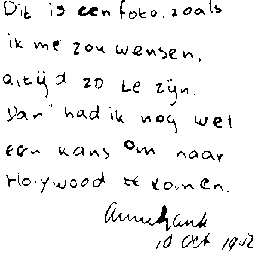 Dit is een foto, zoals
ik me zou wensen,
altijd zo te zijn.
Dan had ik nog wel
een kans om naar
Holywood te komen.
Annefrank
10 Oct 1942